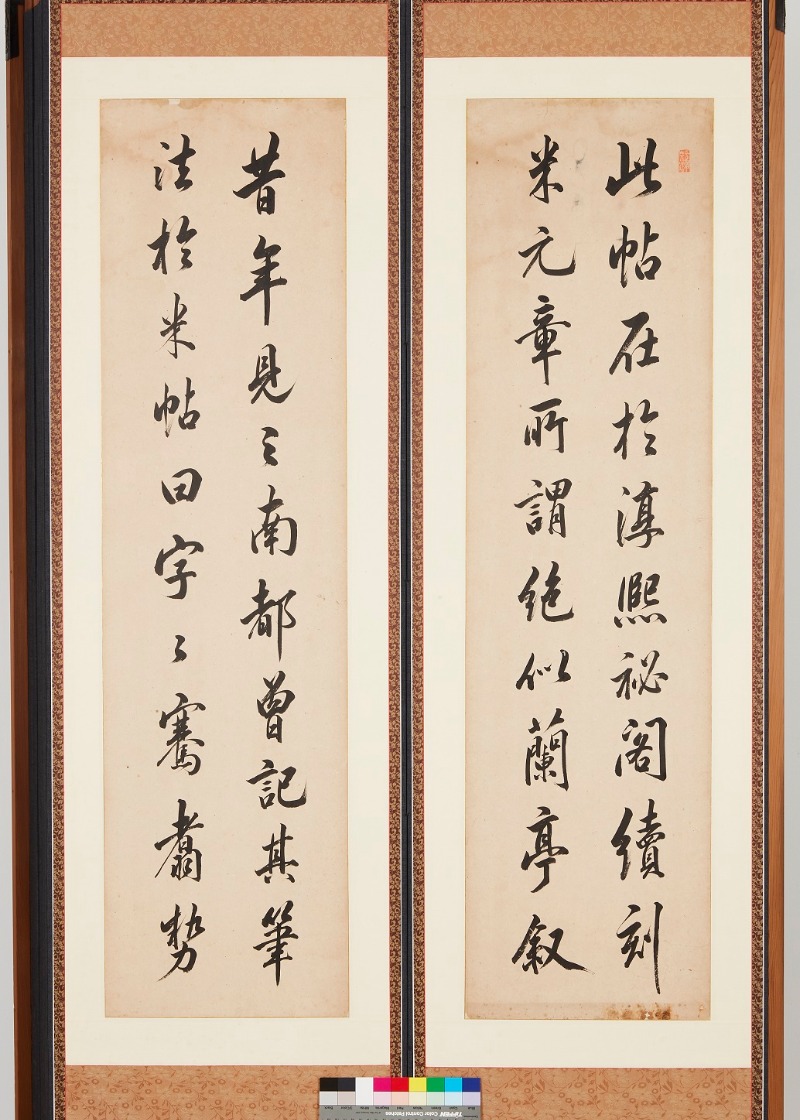 此帖在於淳熈祕閣續刻
米元章所謂絶似蘭亭叙
昔年見之南都曽記其筆
法於米帖曰字〻騫翥勢